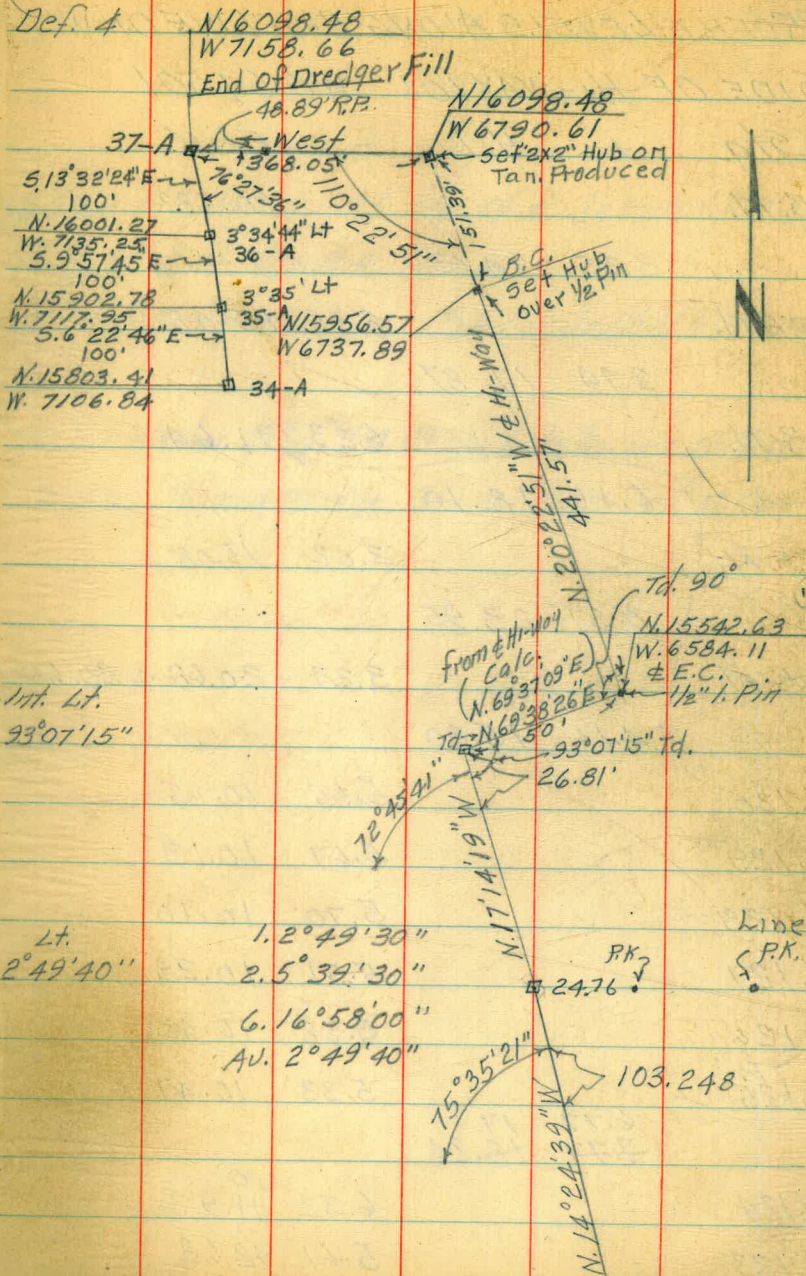 Def. 4
N16098.48
W7158.66
End of Dredger Fill
48.89' R.P.
N16098.48
W6790.61
37-A
West
368.05'
Set 2x2" Hub on
Tan. Produced
S.13°32'24"E
100'
76°27'36"
110°22'51"
151.39'
N.16001.27
W.7135.25
3°34'44" Lt
36-A
S.9°57'45"E
100'
B.C.
Set Hub
over 1/2 Pin
N.15902.78
W.7117.95
3°35' Lt
35-A
N15956.57
W6737.89
S.6°22'46"E
100'
N.15803.41
W.7106.84
34-A
N
N.20°22'51"W ℄ Hi-Way
441.57'
Td. 90°
N.15542.63
W.6584.11
℄ E.C.
1/2" I. Pin
from ℄ Hi-Way
Calc.
(N.69°37'09"E)
N.69°38'26"E
50'
Int. Lt.
93°07'15"
Td.
93°07'15" Td.
26.81'
72°45'41"
N.17°14'19"W
Lt.
2°49'40"
1. 2°49'30"
2. 5°39'30"
6. 16°58'00"
Av. 2°49'40"
24.76
P.K.
Line
P.K.
75°35'21"
103.248
N.14°24'39"W